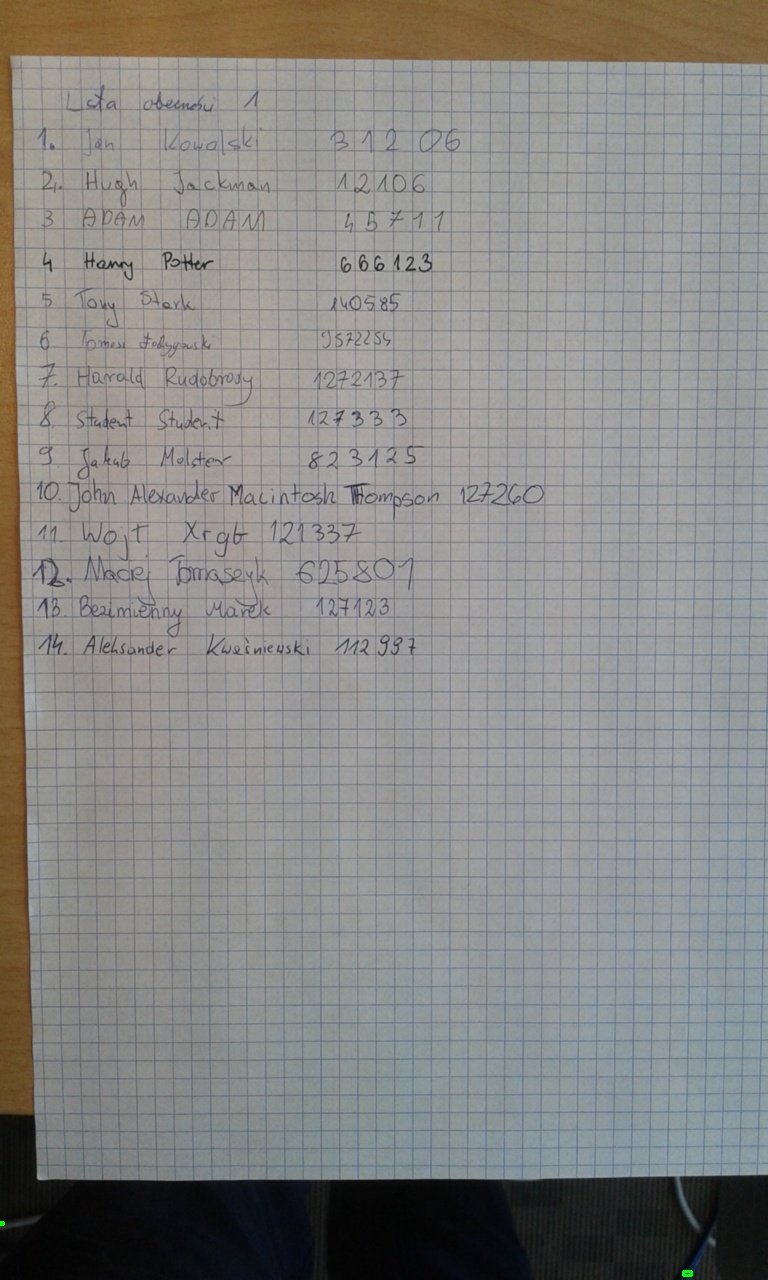 Lista obecności 1
1. Jan Kowalski 31206
2. Hugh Jackman 12106
3 ADAM ADAM 45711
4 Harry Potter 666123
5 Tony Stark 140585
6 Tomasz 9572254
7. Harald Rudobrody 1272137
8. Student Student 127333
9. Jakub Molster 823125
10. John Alexander Macintosh Thompson 127260
11. Wojt Xrgb 121337
12. Maciej Tomaszyk 625801
13 Bezimienny Marek 127123
14. Aleksander Kwaśniewski 112997